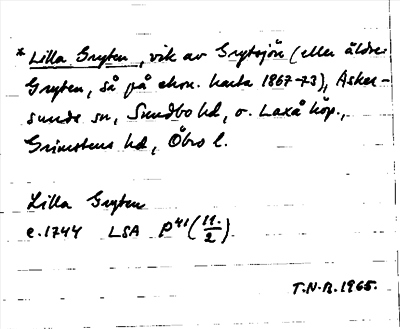 * Lilla Gryten, vik av Grytsjön (eller äldre
Gryten, så på ekon. karta 1867-73), Asker-
sunds sn, Sundbo hd, o. Laxå köp.,
Grimstens hd, Öbro l.
Lilla Gryten
c. 1744 LSA P41 (11./2).
T.N-R. 1965.